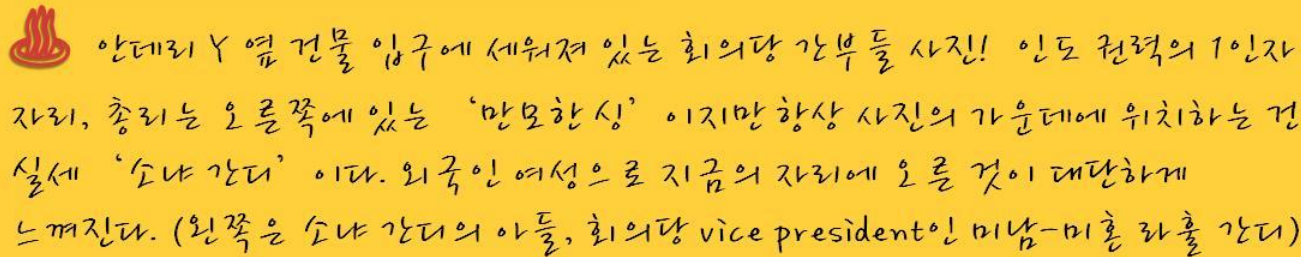 안데리 Y 옆 건물 입구에 세워져 있는 회의당 간부들 사진! 인도 권력의 1인자
자리, 총리는 오른쪽에 있는 ‘만모한 싱’ 이지만 항상 사진의 가운데에 위치하는 건
실세 ‘소냐 간디’ 이다. 외국인 여성으로 지금의 자리에 오른 것이 대단하게
느껴진다. (왼쪽은 소냐 간디의 아들, 회의당 vice president인 미남-미혼 라훌 간디)